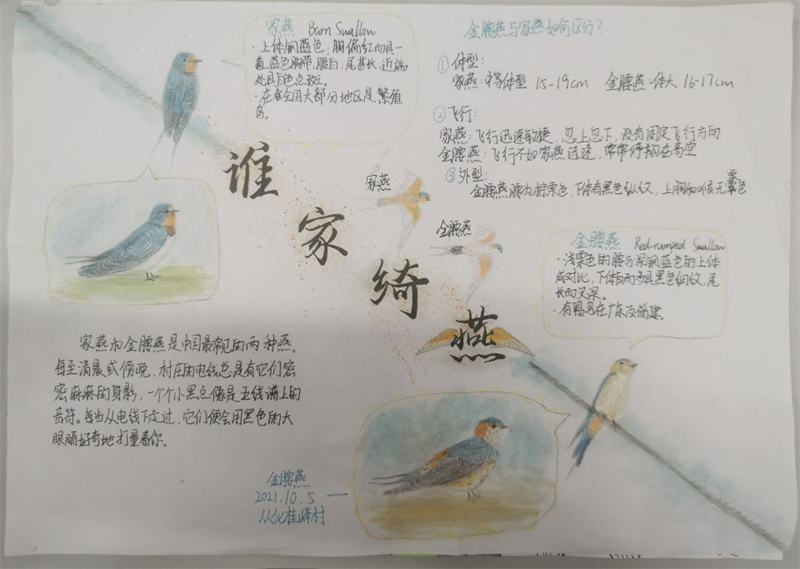 家燕 Barn Swallow
·上体钢蓝色；胸偏红而具一
道蓝色胸带，腹白；尾甚长，近端
处具白色点斑。
·在全国大部分地区是繁殖
鸟。
金腰燕与家燕如何区分？
①体型：
家燕：中等体型 15-19cm 金腰燕：体大 16-17cm
②飞行：
家燕：飞行迅速敏捷，忽上忽下，没有固定飞行方向
金腰燕：飞行不如家燕迅速，常常停翔在高空
③外型：
金腰燕腰为棕栗色，下体有黑色纵纹，上胸
谁
家
绮
燕
家燕
金腰燕
金腰燕 Red-rumped Swallow
·浅栗色的腰与深钢蓝色的上体
成对比，下体白而多具黑色细纹，尾
长而叉深。
·有留鸟在广东及福建。
家燕和金腰燕是中国最常见的两种燕。
每至清晨或傍晚，村庄的电线总是有它们密
密麻麻的身影，一个个小黑点像是五线谱上的
音符。每当从电线下走过，它们便会用黑色的大
眼睛好奇地打量着你。
金腰燕
2021.10.5
从化桂峰村